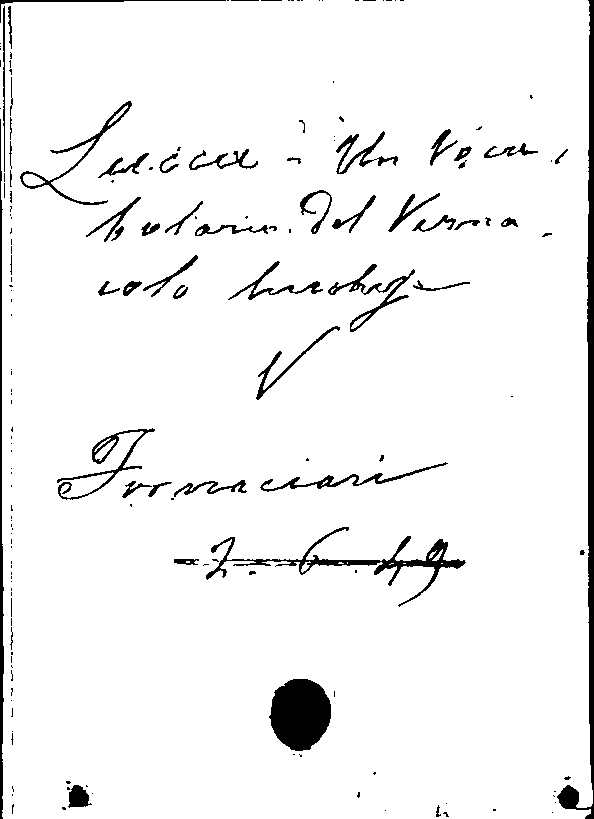 Lucca - Un Voca-
bolario del Verna-
colo lucchese
V
Fornaciari
2. 6. 49